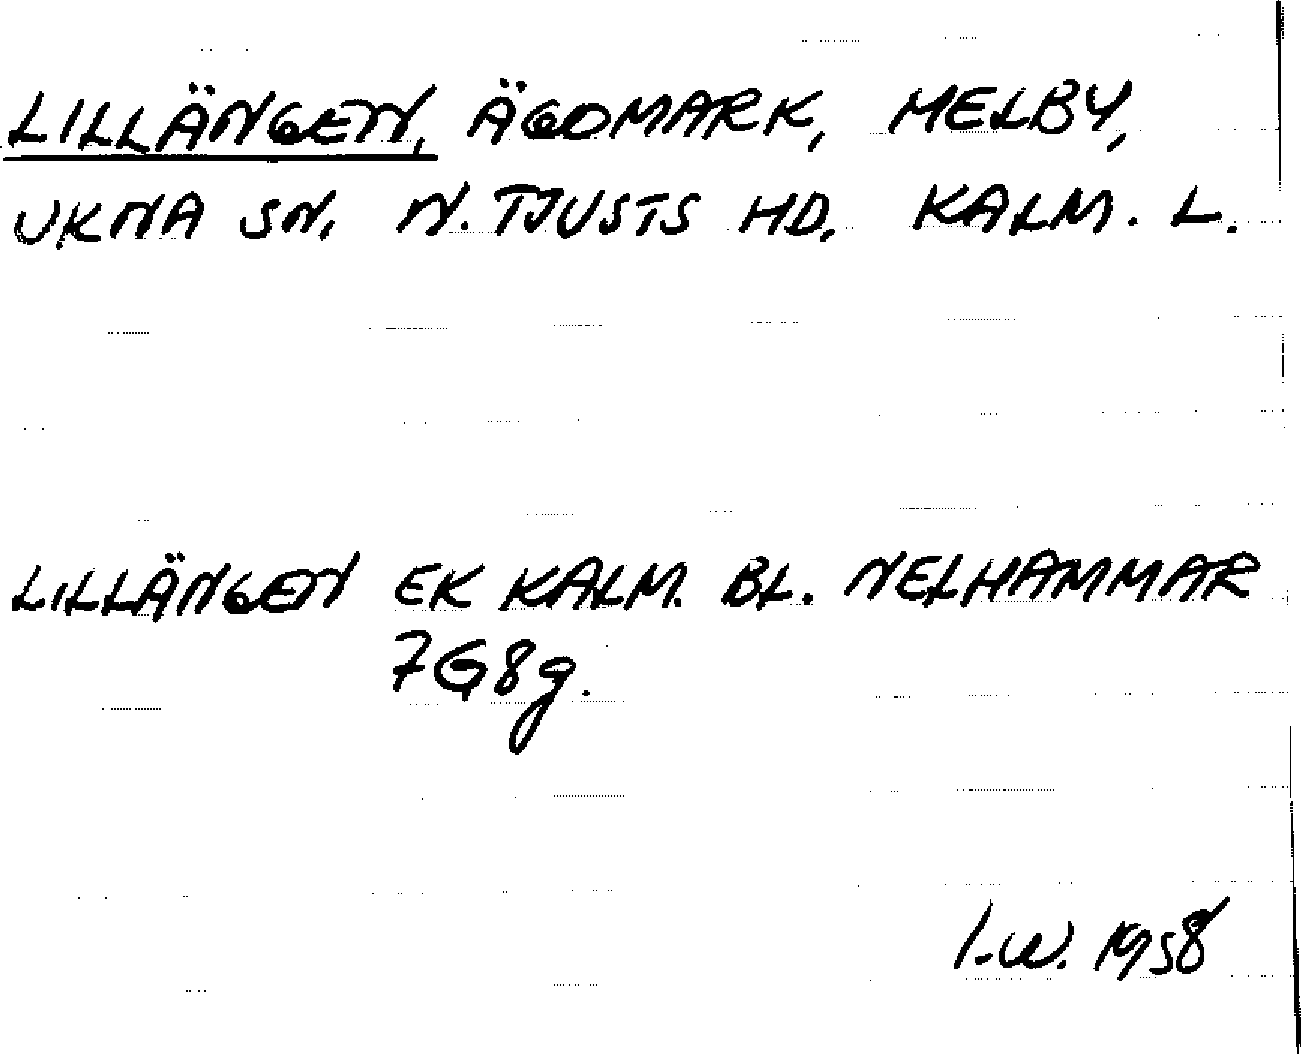 LILLÄNGEN, ÄGOMARK, MELBY,
UKNA SN, N. TJUSTS HD, KALM. L.
LILLÄNGEN EK KALM. BL. NELHAMMAR
7G8g.
I.W. 1958